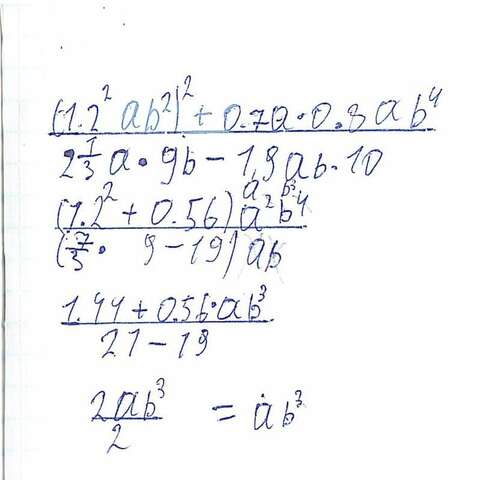 (1.2² ab²)² + 0.7a·0.8ab⁴
2 1/3 a·9b − 1,9ab·10
a b³
(1.2² + 0.56)a²b⁴
(7/3· 9−19)ab
1.44+0.56·ab³
21−19
2ab³
2
= ab³